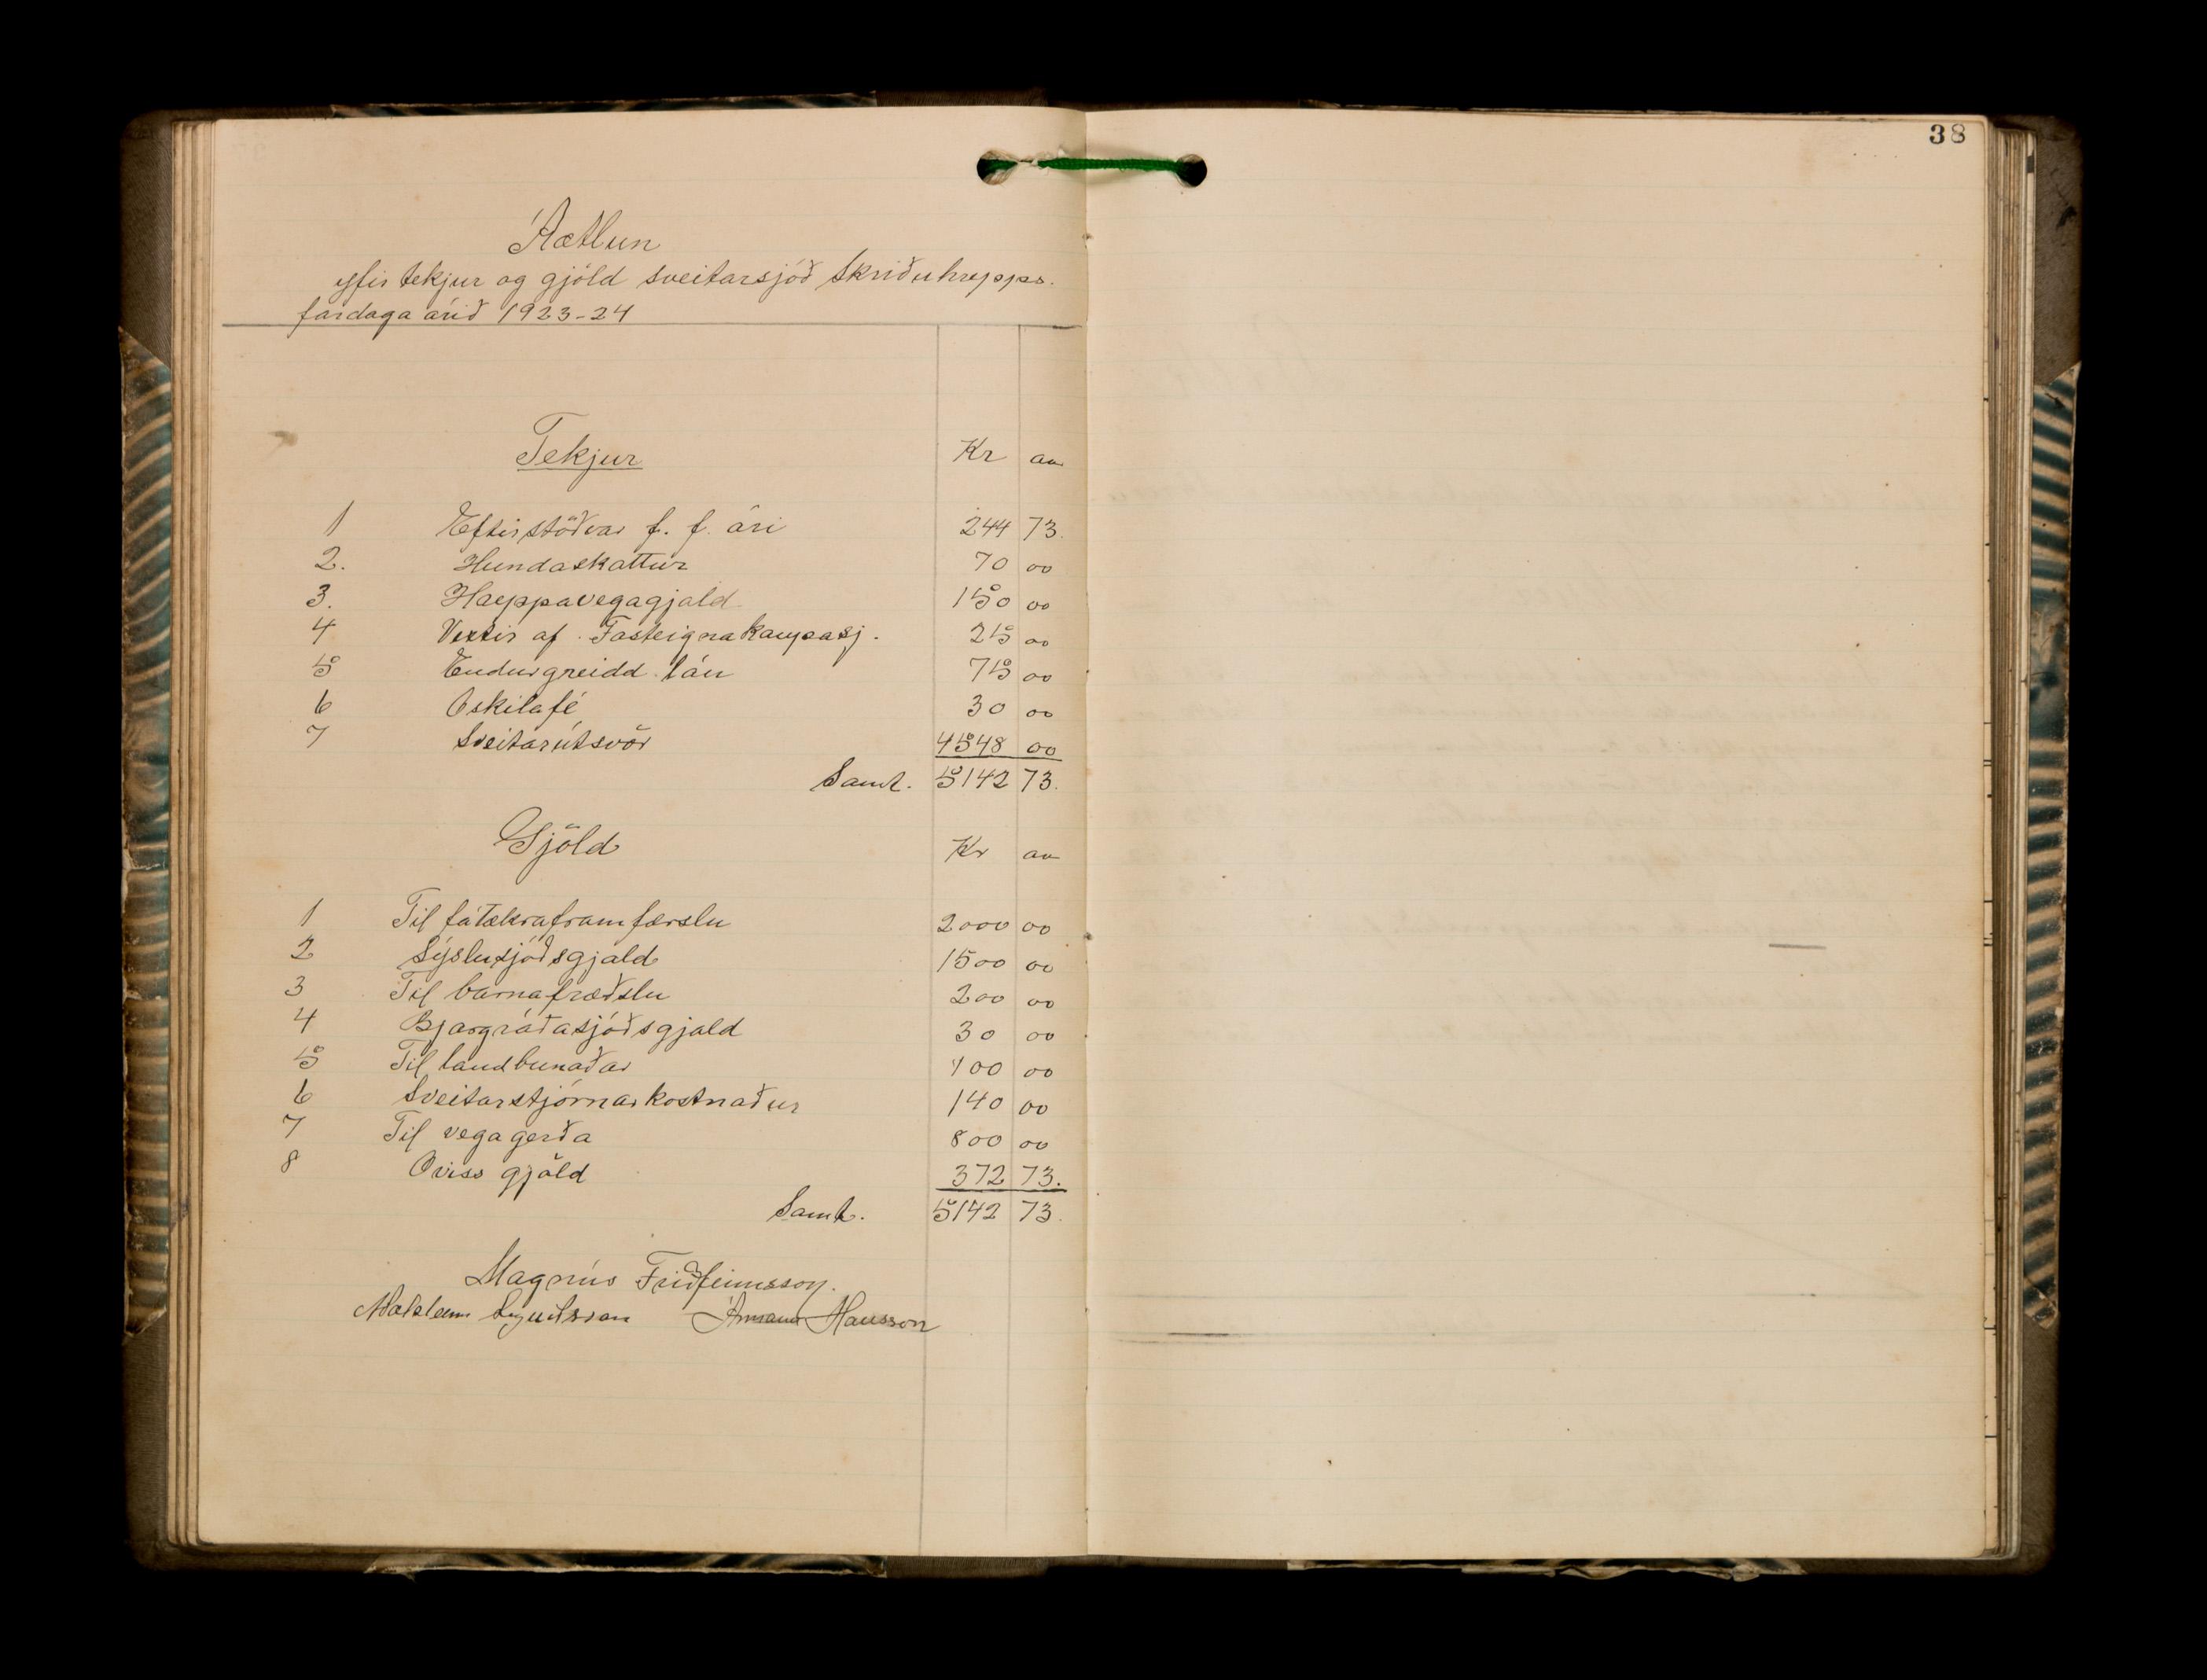 38
Áætlun
yfir tekjur og gjöld sveitarsjóð Skriðuhrepps.
fardaga árið 1923-24
Tekjur Kr au
1 Eftirstöðvar f. f. ári 244 73.
2. Hundaskattur 70 00
3. Hreppavegagjald 150 00
4 Vextir af Fasteignakaupasj. 25 00
5 Endurgreidd lán 75 00
6 Oskilafé 30 00
7 Sveitarútsvör 4548 00
Samt. 5142 73.
Gjöld Kr au
1 Til fátækraframfærslu 2000 00
2 Sýslusjóðsgjald 1500 00
3 Til barnafræðslu 200 00
4 Bjargráðasjóðsgjald 30 00
5 Til landbunaðar 100 00
6 Sveitarstjórnarkostnaður 140 00
7 Til vegagerða 800 00
8 Oviss gjöld 372 73.
Samt. 5142 73.
Magnús Friðfinnsson.
Ármann Hansson